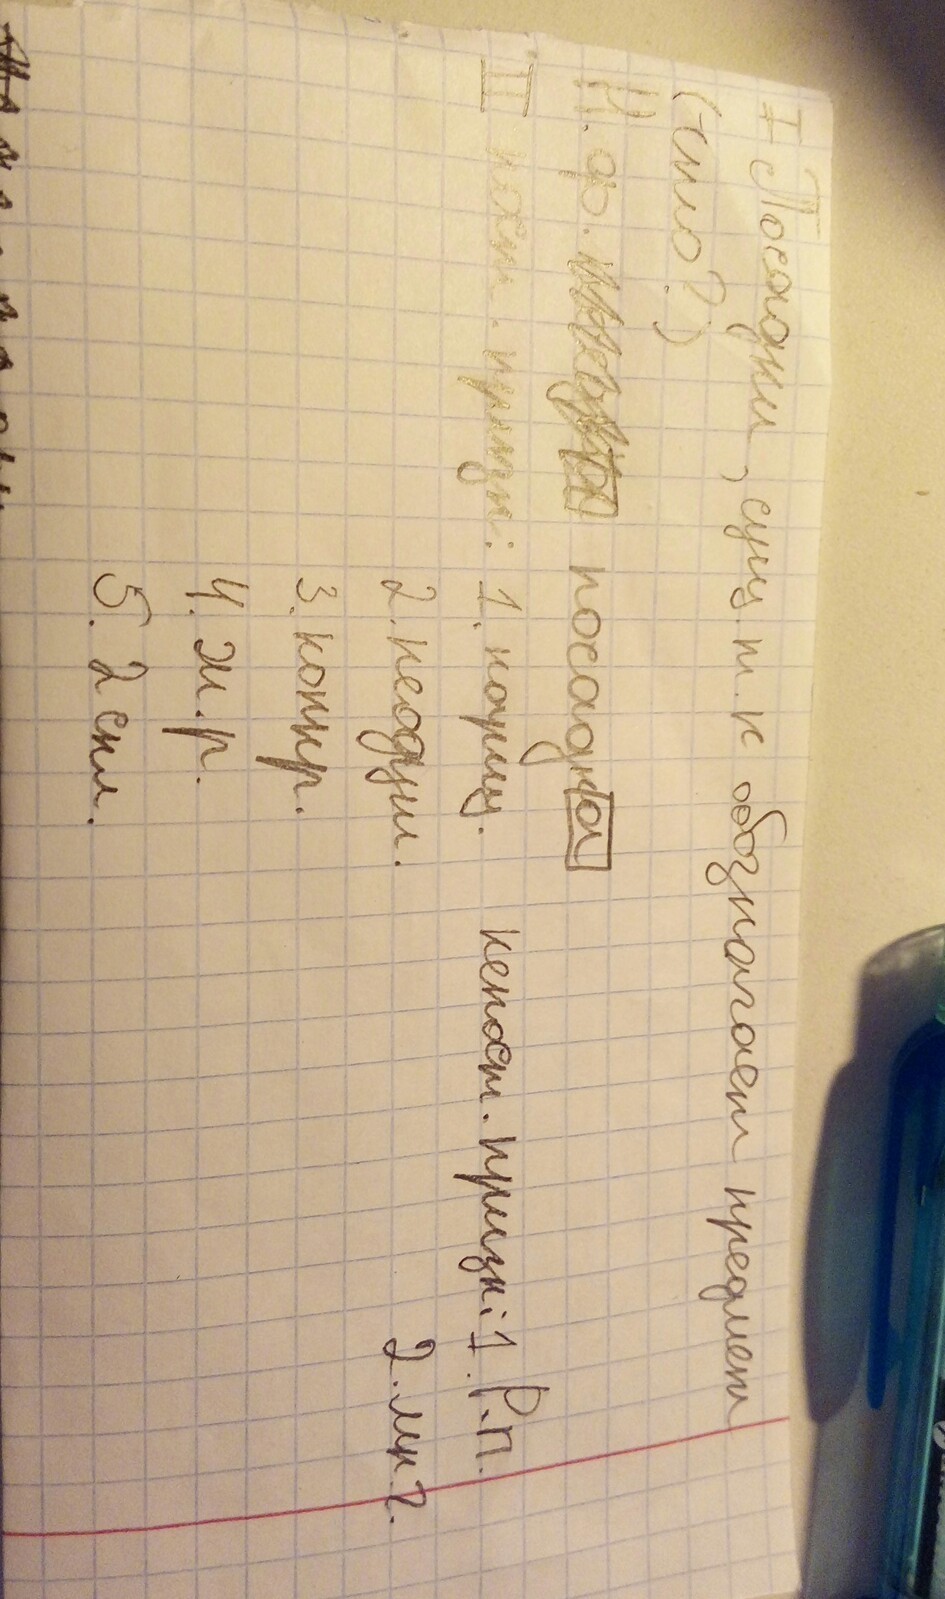 I Посадки, сущ. т.к обозначает предмет
(что?)
Н.ф. посадка
II пост. призн: 1. нариц. непост. призн: 1. Р.п.
2. неодуш. 2. мн?.
3. конкр.
4. ж.р.
5. 2 скл.